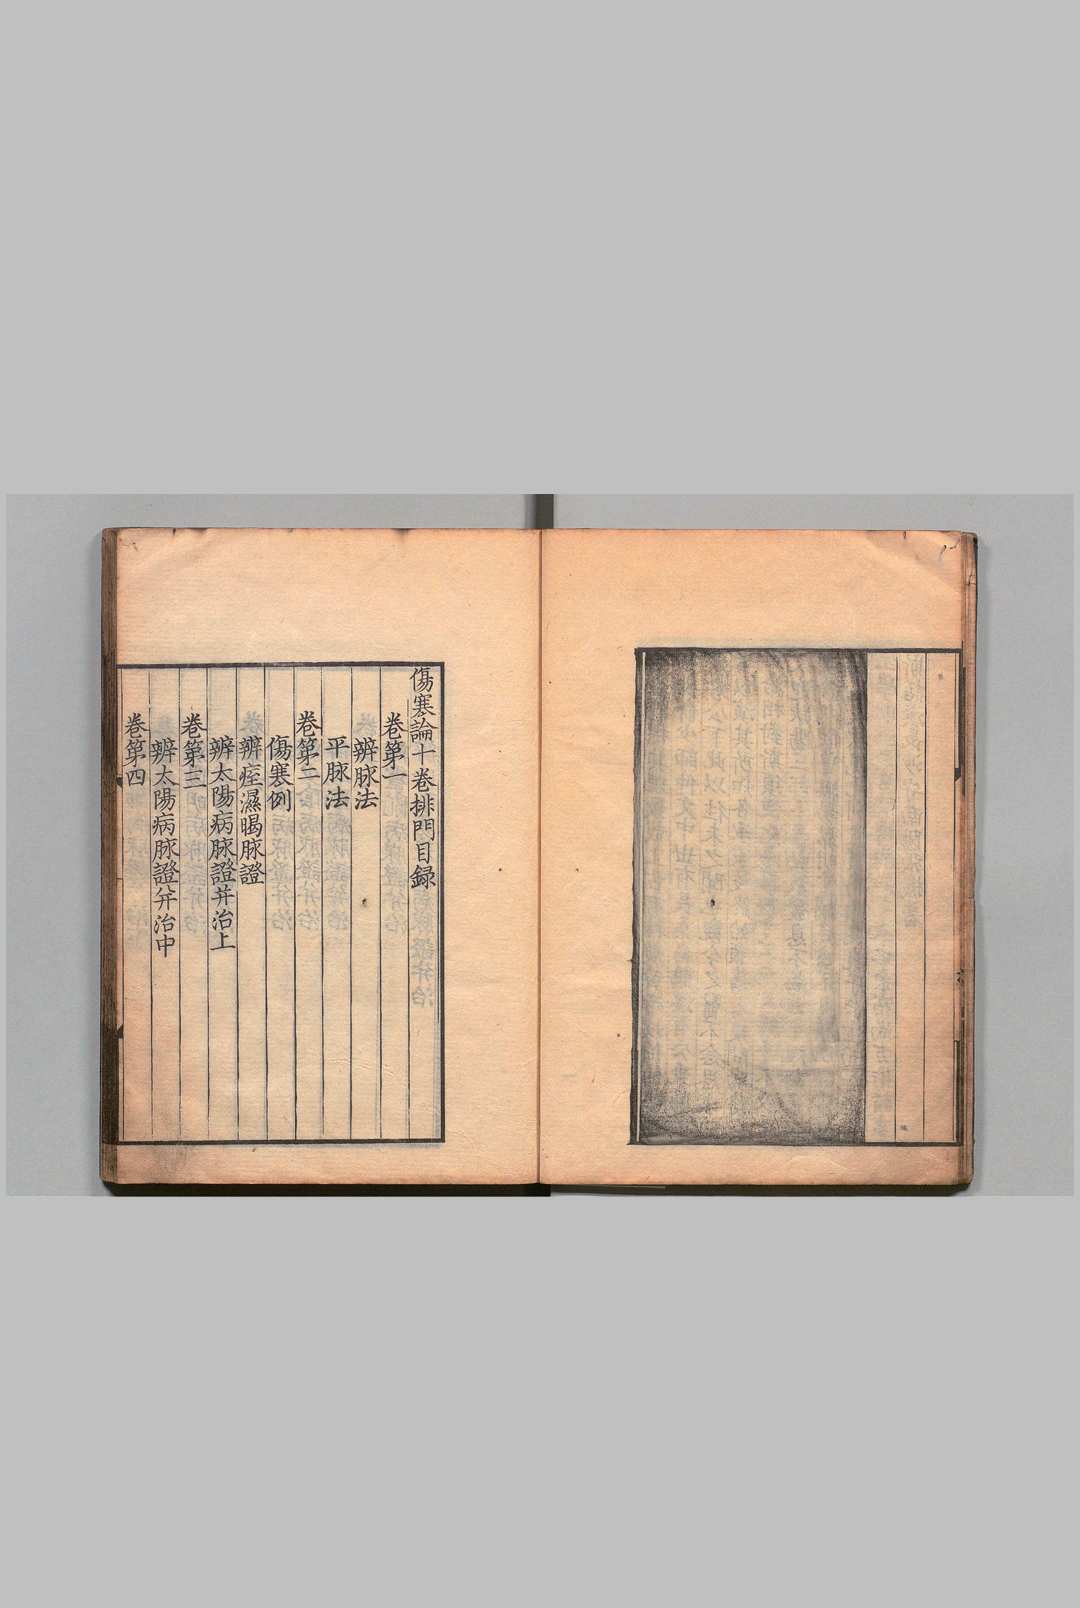 傷寒論十卷排門目録
卷第一
辨脉法
平脉法
卷第二
傷寒例
辨痓濕暍脉證
辨太陽病脉證并治上
卷第三
辨太陽病脉證并治中
卷第四